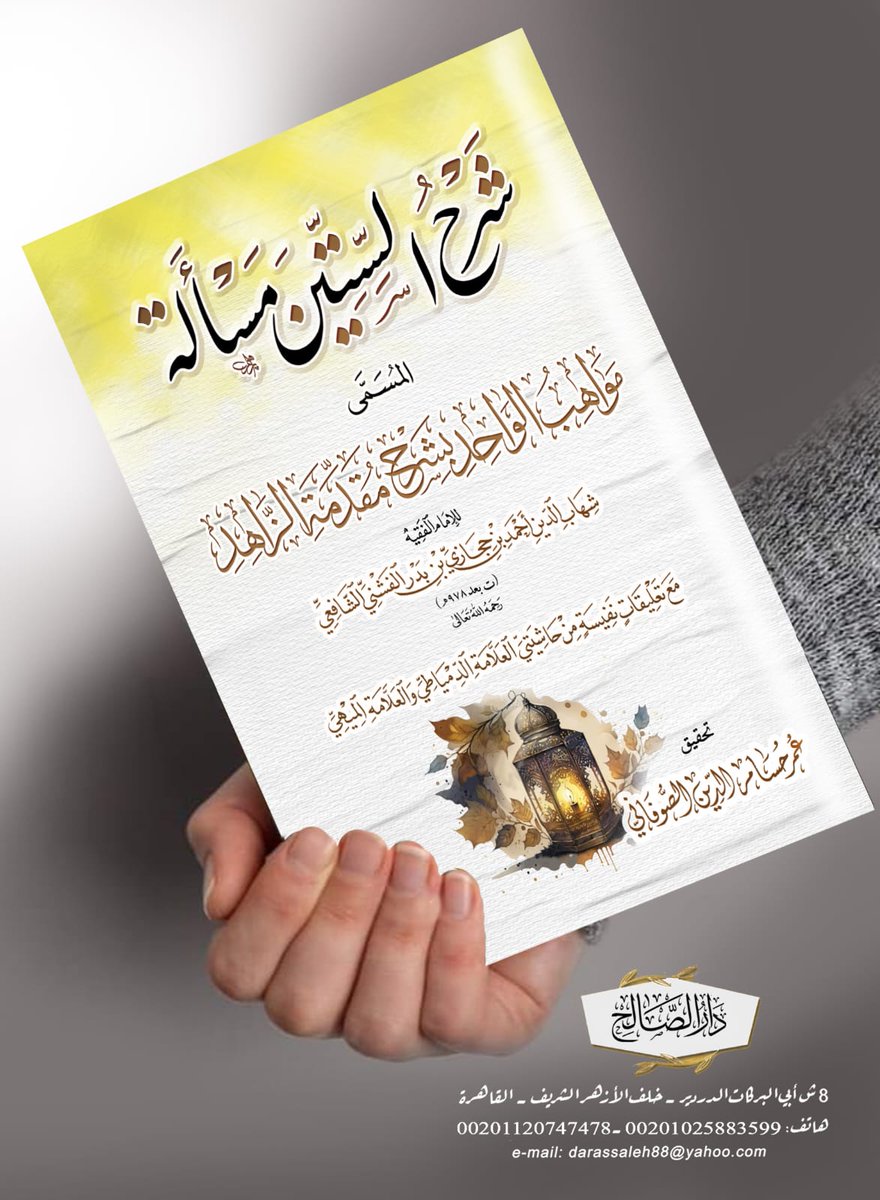 شَرْحُ السِّتِّينَ مَسْأَلَة
المُسَمَّى
مَوَاهِبُ الوَاحِدِ بِشَرْحِ مُقَدِّمَةِ الزَّاهِدِ
للإمام الفقيه
شهاب الدين أحمد بن حجازي بن بدر الفشني الشافعي
(ت بعد ٩٧٨هـ)
رحمه الله تعالى
مع تعليقات نفيسة من حاشيتي العلامة الدمياطي والعلامة الميهي
تحقيق
عمر حسام الدين الصوفاني
دار الصالح
8 ش أبي البركات الدردير ـ خلف الأزهر الشريف ـ القاهرة
هاتف: 00201025883599 ـ 00201120747478
e-mail: darassaleh88@yahoo.com